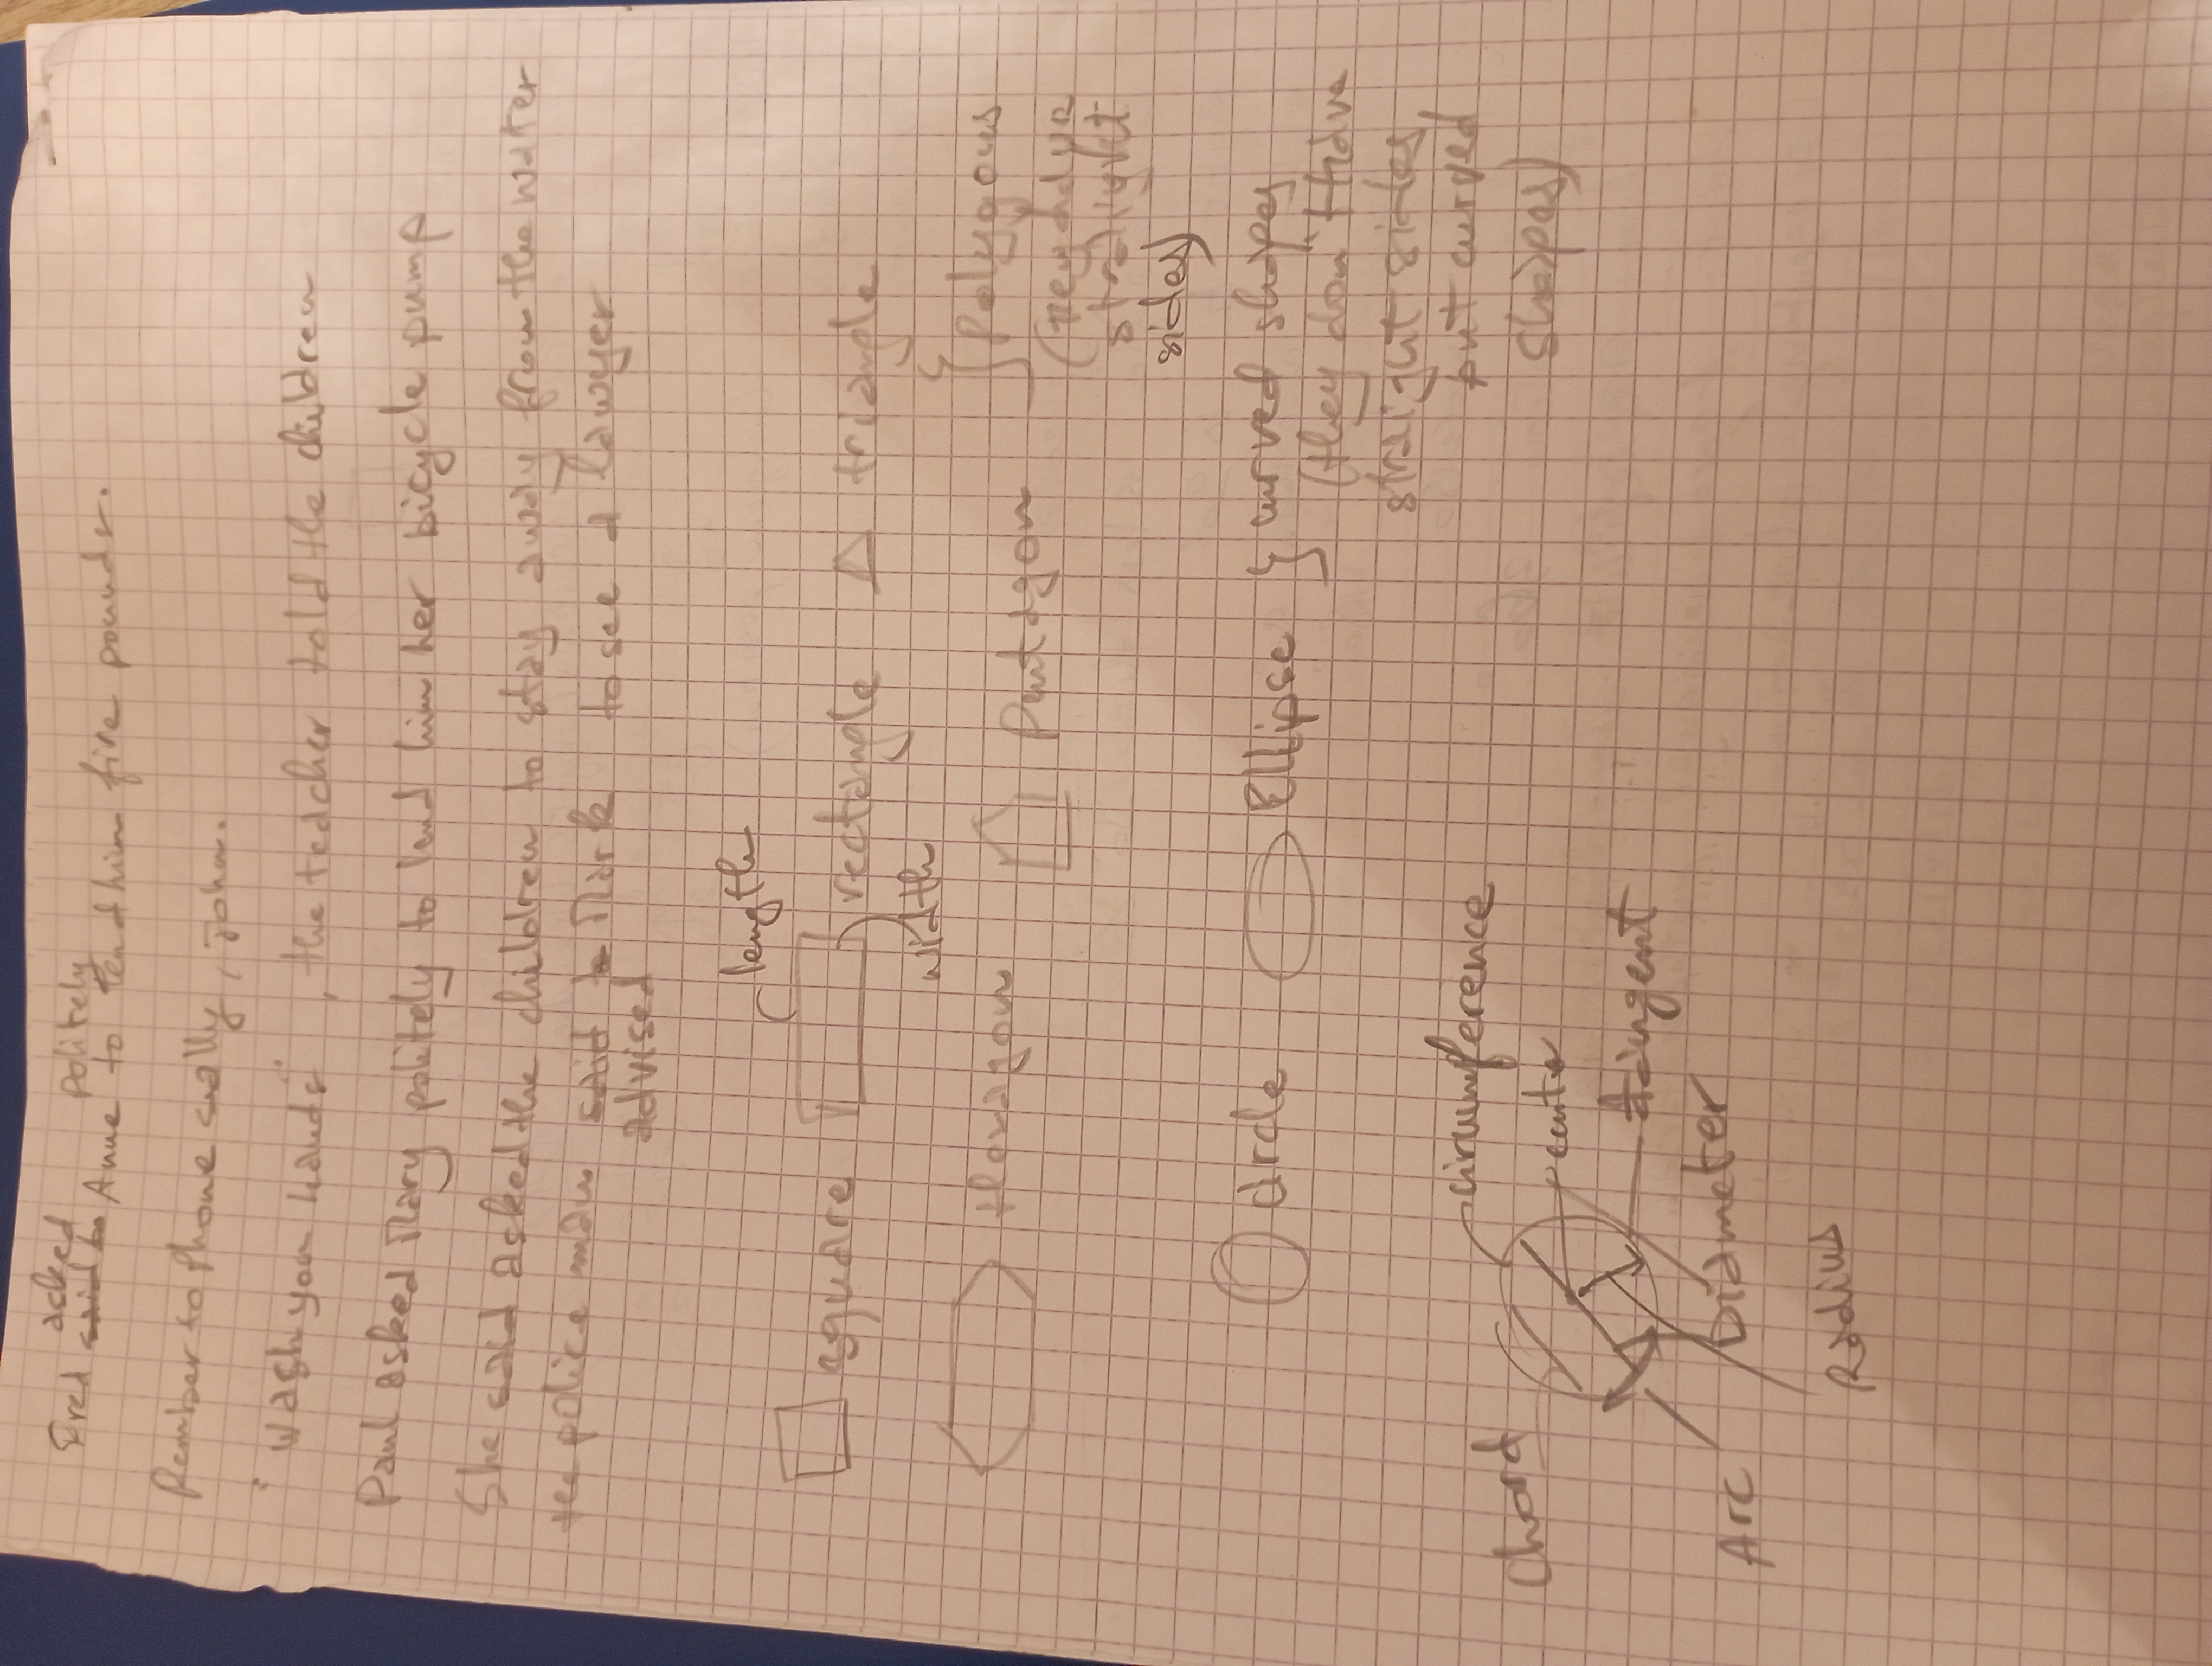 asked politely
Fred said to Anne to lend him five pounds.
Remember to phone Sally, John.
"Wash your hands", the teacher told the children
Paul asked Mary politely to lend him her bicycle pump
She said asked the children to stay away from the water
the police man said to Mark to see a lawyer
advised
length
square rectangle triangle
width
Hexagon Pentagon } Polygons
(they have
straight
sides)
circle Ellipse } curved shapes
(they don't have
straight sides
but curved
shapes)
circumference
Chord
center
tangent
Arc
Diameter
Radius